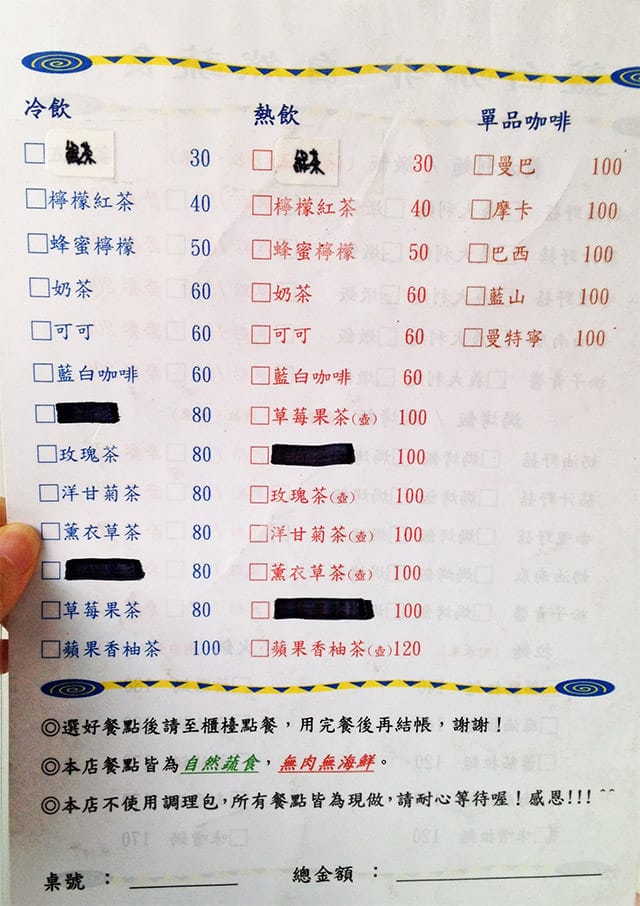 冷飲
□ 30
□檸檬紅茶 40
□蜂蜜檸檬 50
□奶茶 60
□可可 60
□藍白咖啡 60
□ 80
□玫瑰茶 80
□洋甘菊茶 80
□薰衣草茶 80
□ 80
□草莓果茶 80
□蘋果香柚茶 100
熱飲
□ 30
□檸檬紅茶 40
□蜂蜜檸檬 50
□奶茶 60
□可可 60
□藍白咖啡 60
□草莓果茶(壺) 100
□ 100
□玫瑰茶(壺) 100
□洋甘菊茶(壺) 100
□薰衣草茶(壺) 100
□ 100
□蘋果香柚茶(壺)120
單品咖啡
□曼巴 100
□摩卡 100
□巴西 100
□藍山 100
□曼特寧 100
◎選好餐點後請至櫃檯點餐，用完餐後再結帳，謝謝！
◎本店餐點皆為自然蔬食，無肉無海鮮。
◎本店不使用調理包，所有餐點皆為現做，請耐心等待喔！感恩!!! ^^
桌號 ：
總金額 ：